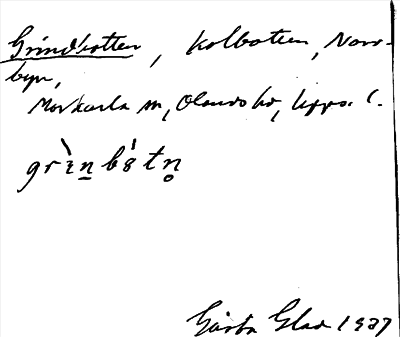 Grindbotten, Kolbotten, Norr-
byn,
Morkarla sn, Olands hd, Upps. l.
Gösta Glad 1937